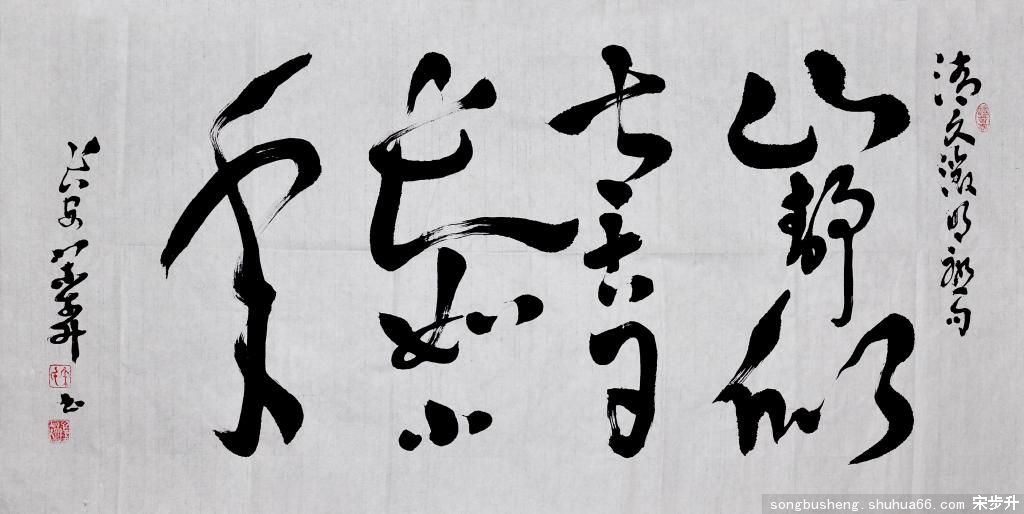 清文徵明联句
山静似
太古日
长如小
年
宋步升
书
songbusheng.shuhua66.com 宋步升